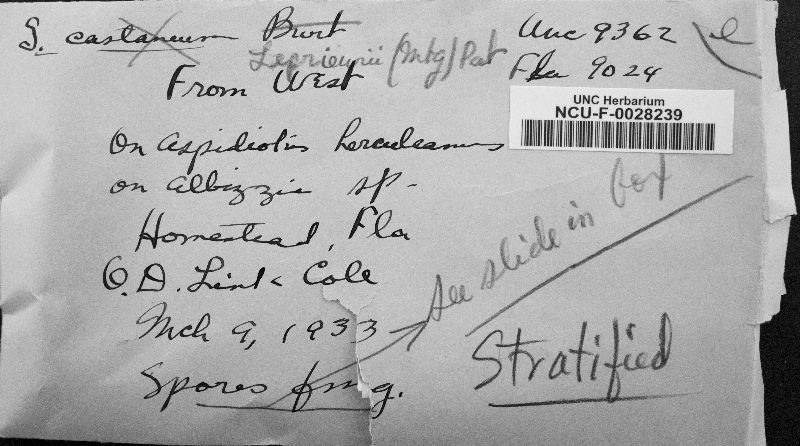 S. castaneum Burt Unc 9362
Leprieurii (Mtg) Pat
From West Fla 9024
UNC Herbarium
NCU-F-0028239
On Aspidiotus herculeanus
on Albizzia sp.
Homestead, Fla
O.D. Link & Cole
Mch 9, 1933
see slide in box
Spores fmg.
Stratified